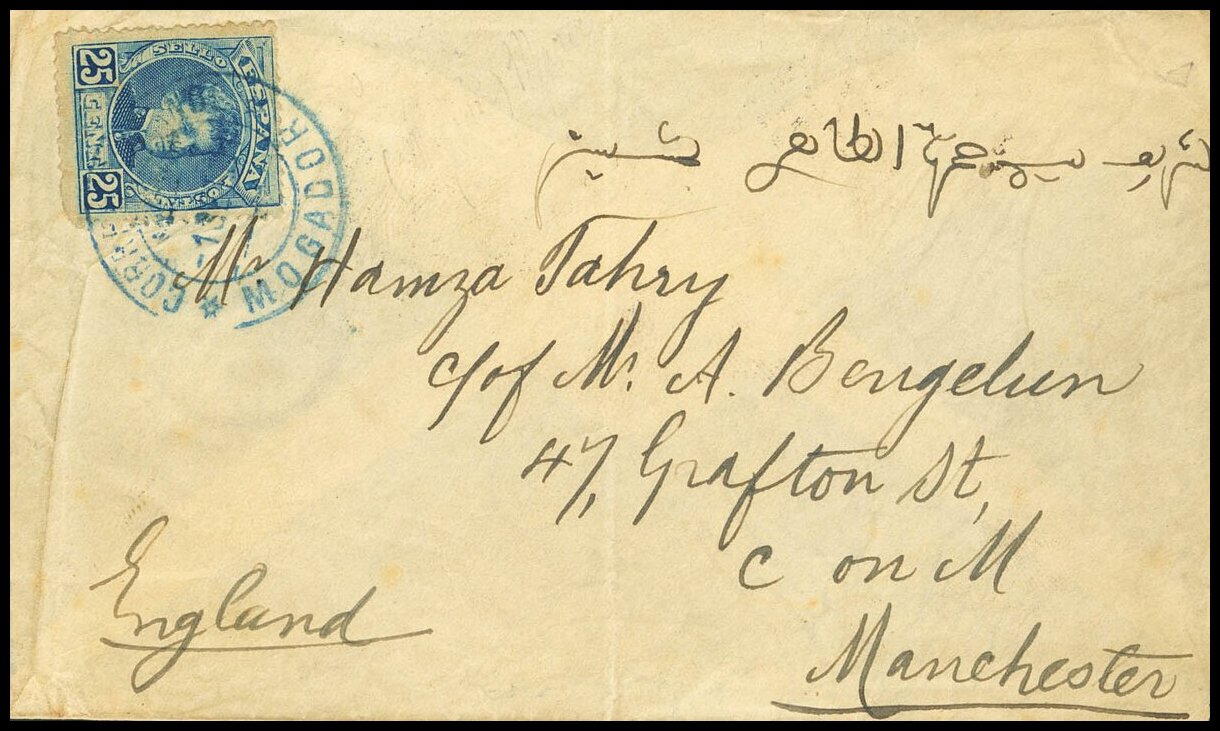 ESPAÑA
SELLO
25 CENT. 25
MOGADOR
الطاهر
Mr Hamza Tahry
c/of Mr. A. Bengelun
47, Grafton St,
C on M
Manchester
England